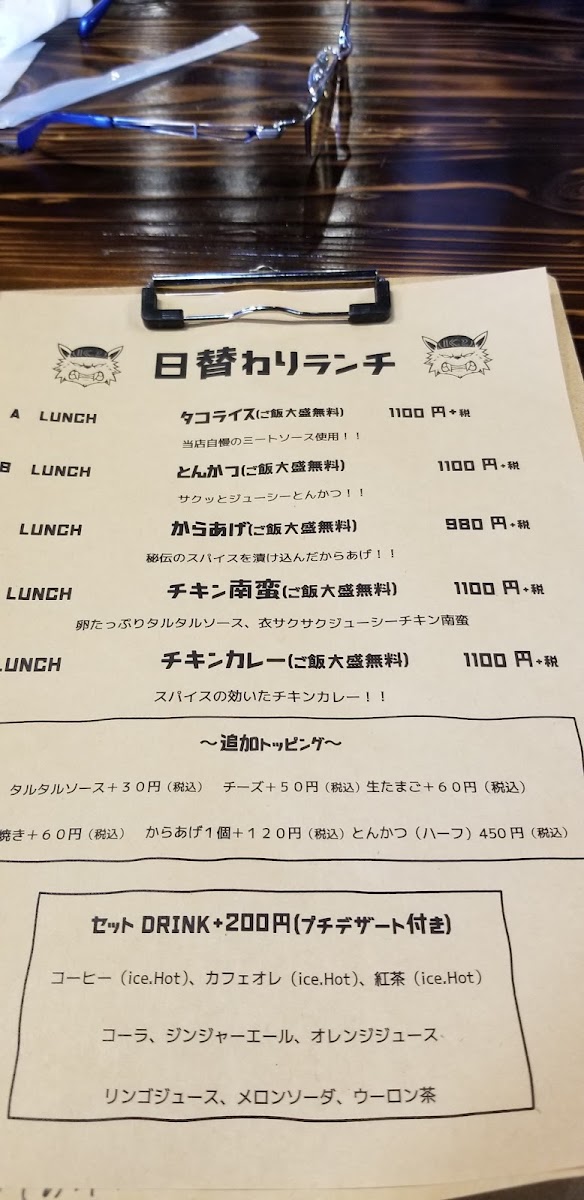 日替わりランチ
A LUNCH タコライス(ご飯大盛無料) 1100 円+税
当店自慢のミートソース使用！！
B LUNCH とんかつ(ご飯大盛無料) 1100 円+税
サクッとジューシーとんかつ！！
LUNCH からあげ(ご飯大盛無料) 980 円+税
秘伝のスパイスを漬け込んだからあげ！！
LUNCH チキン南蛮(ご飯大盛無料) 1100 円+税
卵たっぷりタルタルソース、衣サクサクジューシーチキン南蛮
LUNCH チキンカレー(ご飯大盛無料) 1100 円+税
スパイスの効いたチキンカレー！！
～追加トッピング～
タルタルソース＋３０円（税込） チーズ＋５０円（税込）生たまご＋６０円（税込）
焼き＋６０円（税込） からあげ１個＋１２０円（税込）とんかつ（ハーフ）450 円（税込）
セット DRINK+200円(プチデザート付き)
コーヒー（ice.Hot）、カフェオレ（ice.Hot）、紅茶（ice.Hot）
コーラ、ジンジャーエール、オレンジジュース
リンゴジュース、メロンソーダ、ウーロン茶